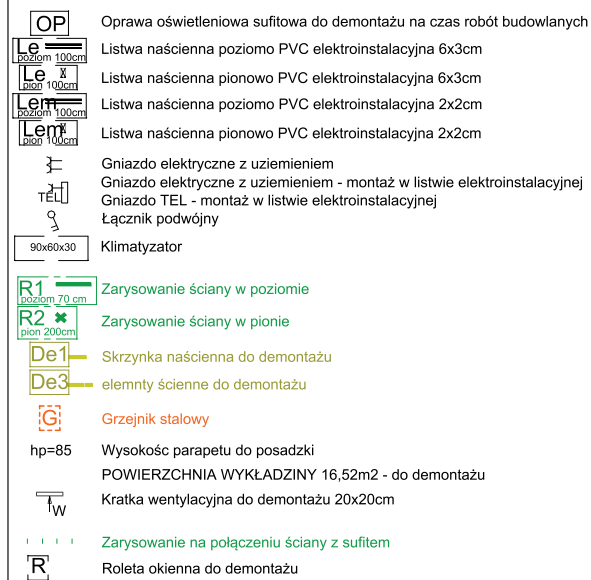 OP Oprawa oświetleniowa sufitowa do demontażu na czas robót budowlanych
Le poziom 100cm Listwa naścienna poziomo PVC elektroinstalacyjna 6x3cm
Le pion 100cm Listwa naścienna pionowo PVC elektroinstalacyjna 6x3cm
Lem poziom 100cm Listwa naścienna poziomo PVC elektroinstalacyjna 2x2cm
Lem pion 100cm Listwa naścienna pionowo PVC elektroinstalacyjna 2x2cm
Gniazdo elektryczne z uziemieniem
Gniazdo elektryczne z uziemieniem - montaż w listwie elektroinstalacyjnej
TEL Gniazdo TEL - montaż w listwie elektroinstalacyjnej
Łącznik podwójny
90x60x30 Klimatyzator
R1 poziom 70 cm Zarysowanie ściany w poziomie
R2 pion 200cm Zarysowanie ściany w pionie
De1 Skrzynka naścienna do demontażu
De3 elemnty ścienne do demontażu
G Grzejnik stalowy
hp=85 Wysokośc parapetu do posadzki
POWIERZCHNIA WYKŁADZINY 16,52m2 - do demontażu
W Kratka wentylacyjna do demontażu 20x20cm
Zarysowanie na połączeniu ściany z sufitem
R Roleta okienna do demontażu